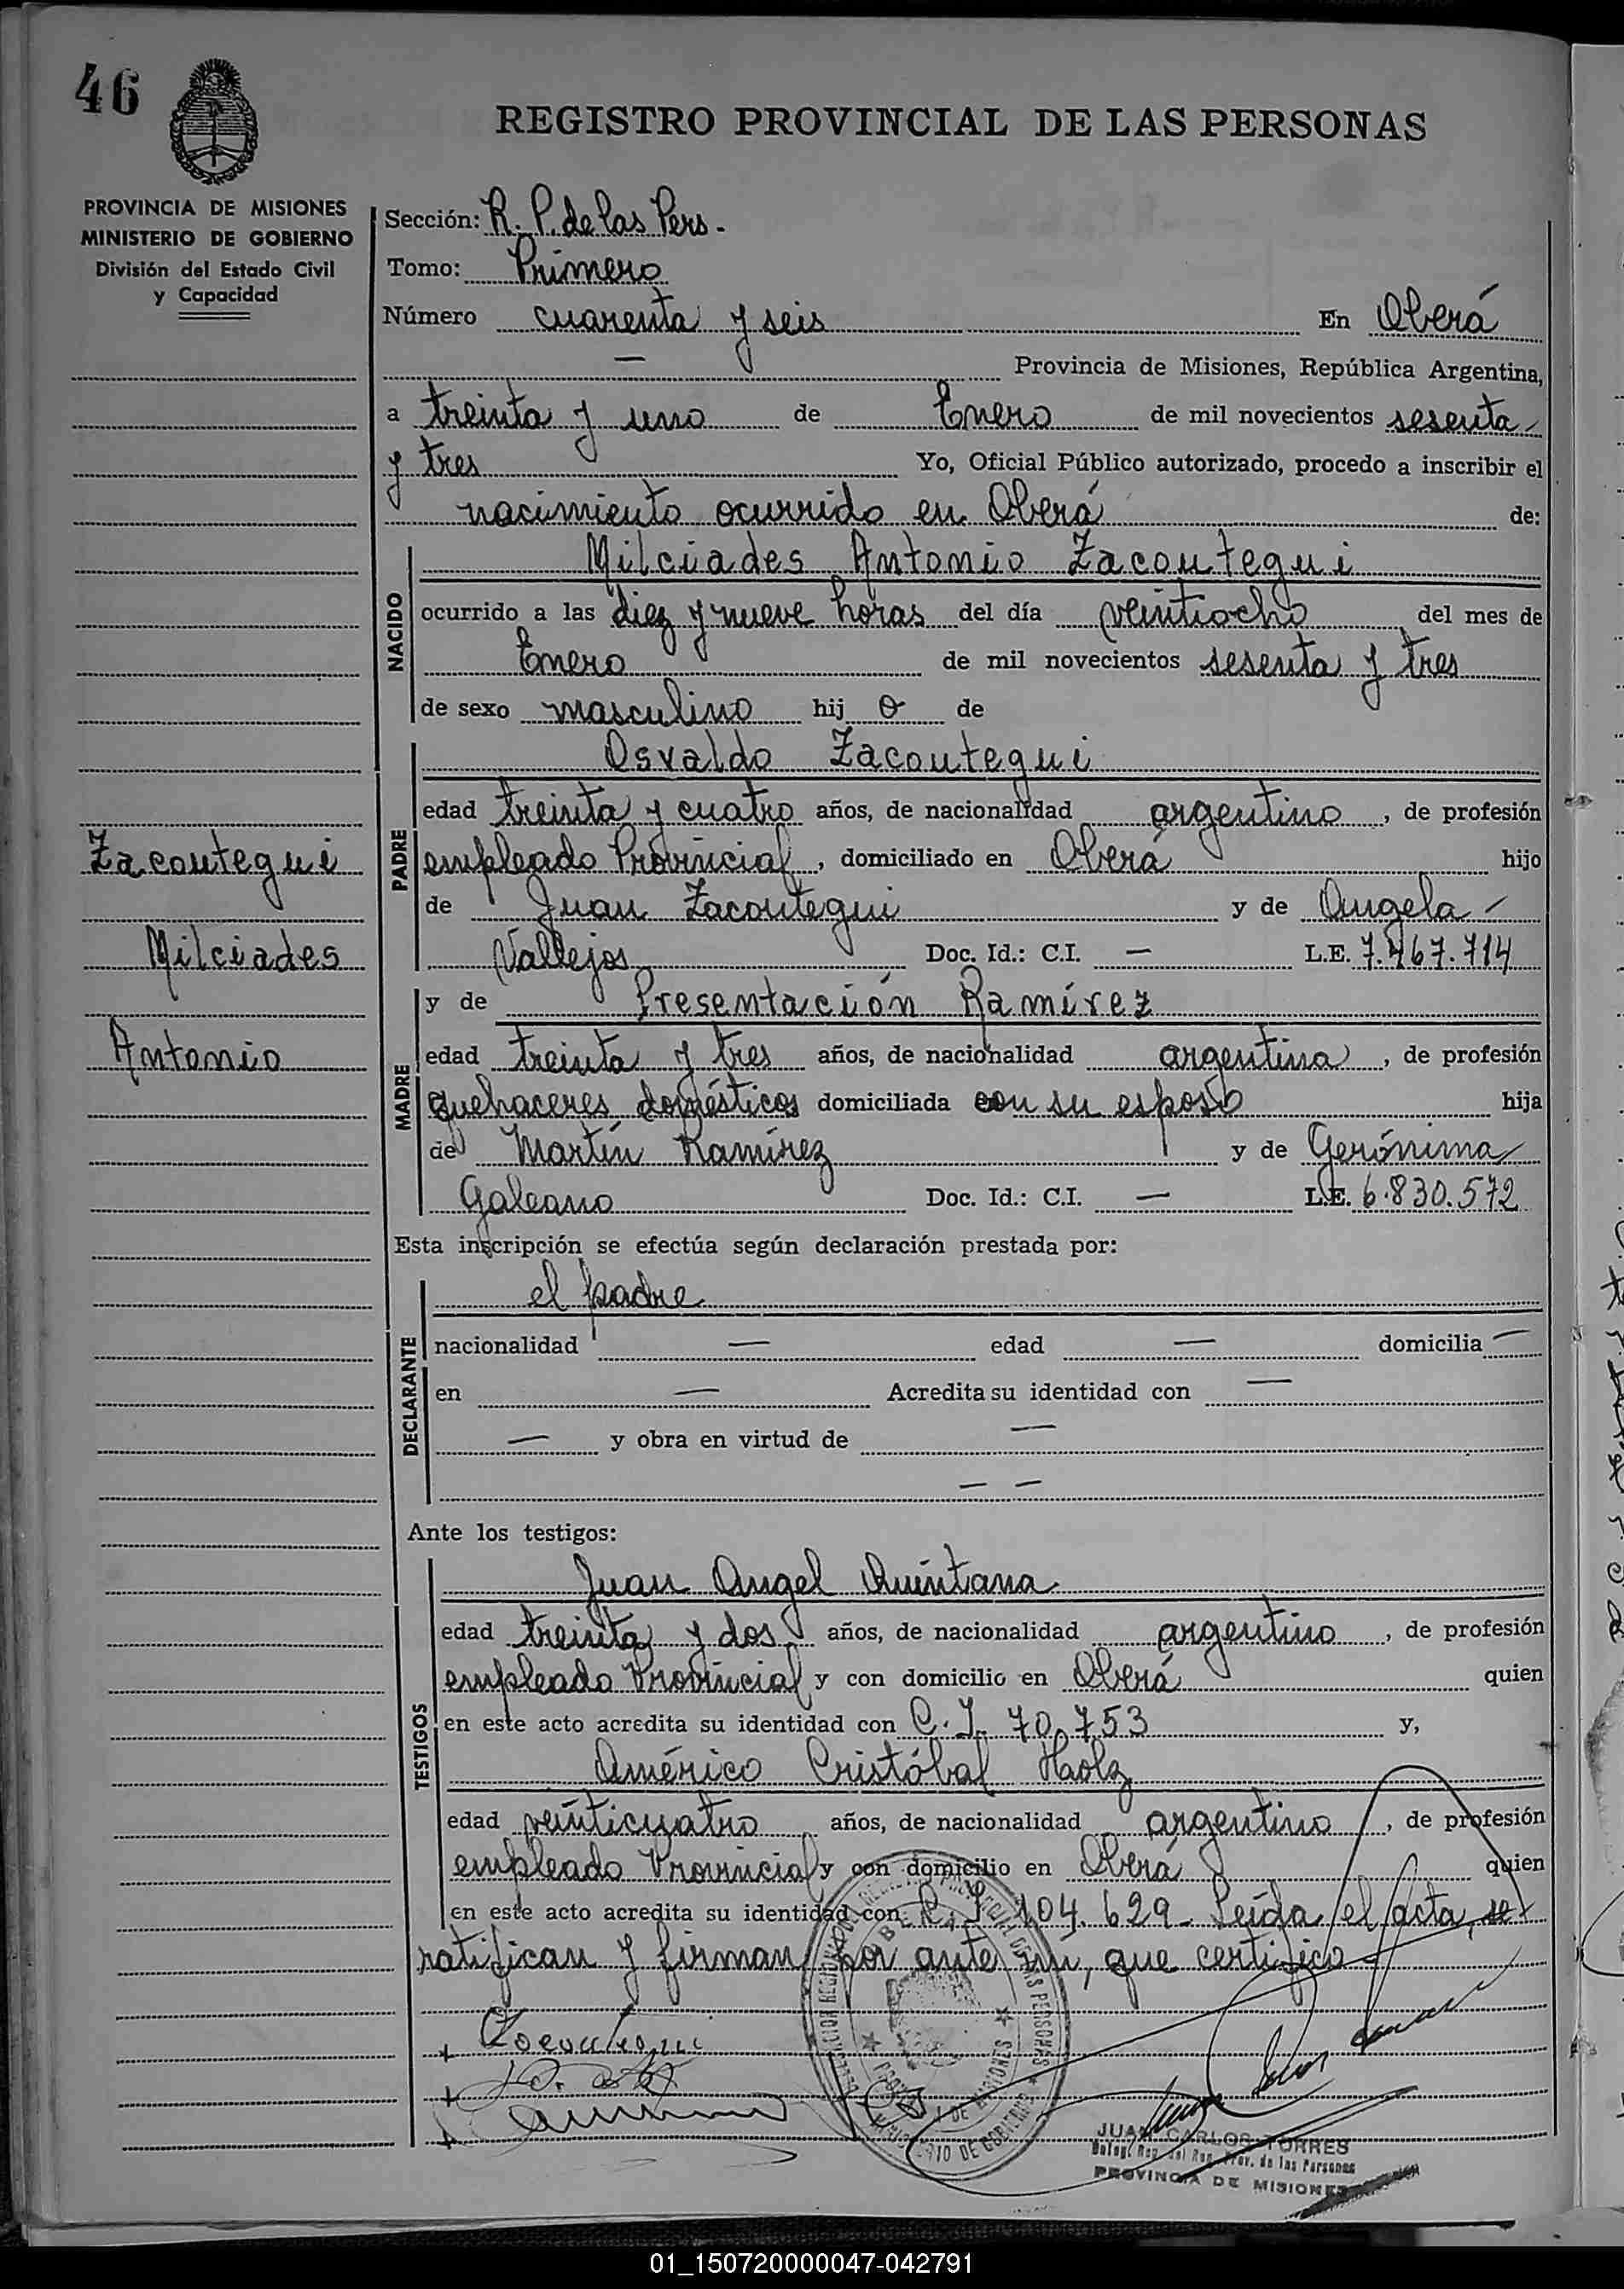 46
REGISTRO PROVINCIAL DE LAS PERSONAS
PROVINCIA DE MISIONES
MINISTERIO DE GOBIERNO
División del Estado Civil
y Capacidad
Sección: R. P. de las Pers.
Tomo: Primero
Número cuarenta y seis En Oberá
— Provincia de Misiones, República Argentina,
a treinta y uno de Enero de mil novecientos sesenta
y tres Yo, Oficial Público autorizado, procedo a inscribir el
nacimiento ocurrido en Oberá de:
NACIDO
Milciades Antonio Zacoutegui
ocurrido a las diez y nueve horas del día veintiocho del mes de
Enero de mil novecientos sesenta y tres
de sexo masculino hij o de
PADRE
Osvaldo Zacoutegui
edad treinta y cuatro años, de nacionalidad argentino, de profesión
empleado Provincial, domiciliado en Oberá hijo
de Juan Zacoutegui y de Angela -
Vallejos Doc. Id.: C.I. — L.E. 7.467.714
Zacoutegui
Milciades
Antonio
MADRE
y de Presentación Ramírez
edad treinta y tres años, de nacionalidad argentina, de profesión
quehaceres domésticos domiciliada con su esposo hija
de Martín Ramírez y de Gerónima
Galeano Doc. Id.: C.I. — L.E. 6.830.572
Esta inscripción se efectúa según declaración prestada por:
DECLARANTE
el padre
nacionalidad — edad — domicilia —
en — Acredita su identidad con —
— y obra en virtud de —
— —
Ante los testigos:
TESTIGOS
Juan Angel Quintana
edad treinta y dos años, de nacionalidad argentino, de profesión
empleado Provincial y con domicilio en Oberá quien
en este acto acredita su identidad con C. I. 70.753 y,
Américo Cristóbal Haolz
edad veinticuatro años, de nacionalidad argentino, de profesión
empleado Provincial y con domicilio en Oberá quien
en este acto acredita su identidad con 104.629 - Leída el acta, se
ratifican y firman por ante mí, que certifico
Zacoutegui
JUAN CARLOS TORRES
PROVINCIA DE MISIONES
01_150720000047-042791